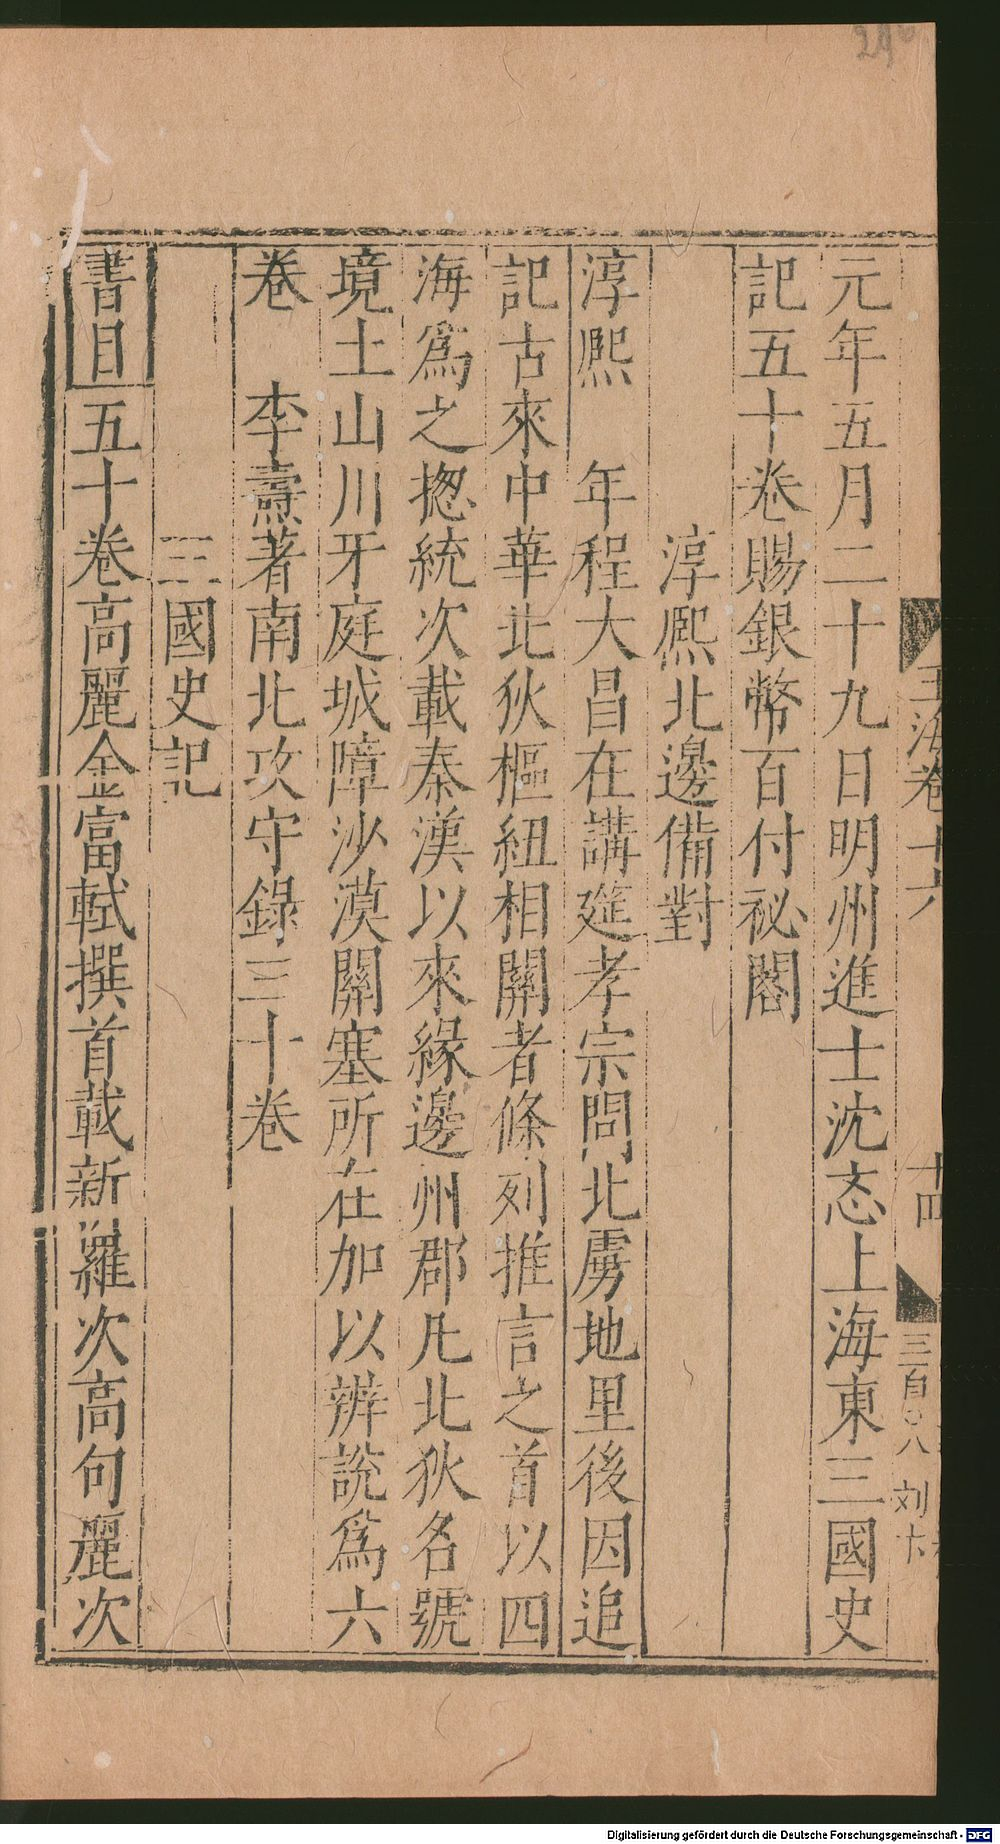 元年五月二十九日明州進士沈忞上海東三國史
記五十卷賜銀幣百付祕閣
淳熈北邊備對
淳熈　年程大昌在講筵孝宗問北虜地里後因追
記古來中華北狄樞紐相關者條列推言之首以四
海爲之揔統次載秦漢以來緣邊州郡凡北狄名號
境土山川牙庭城障沙漠關塞所在加以辨説爲六
卷　李燾著南北攻守錄三十卷
三國史記
書目五十卷高麗金富軾撰首載新羅次高句麗次
玉海卷十六
十四
三百〇八
刘卞
Digitalisierung gefördert durch die Deutsche Forschungsgemeinschaft - DFG